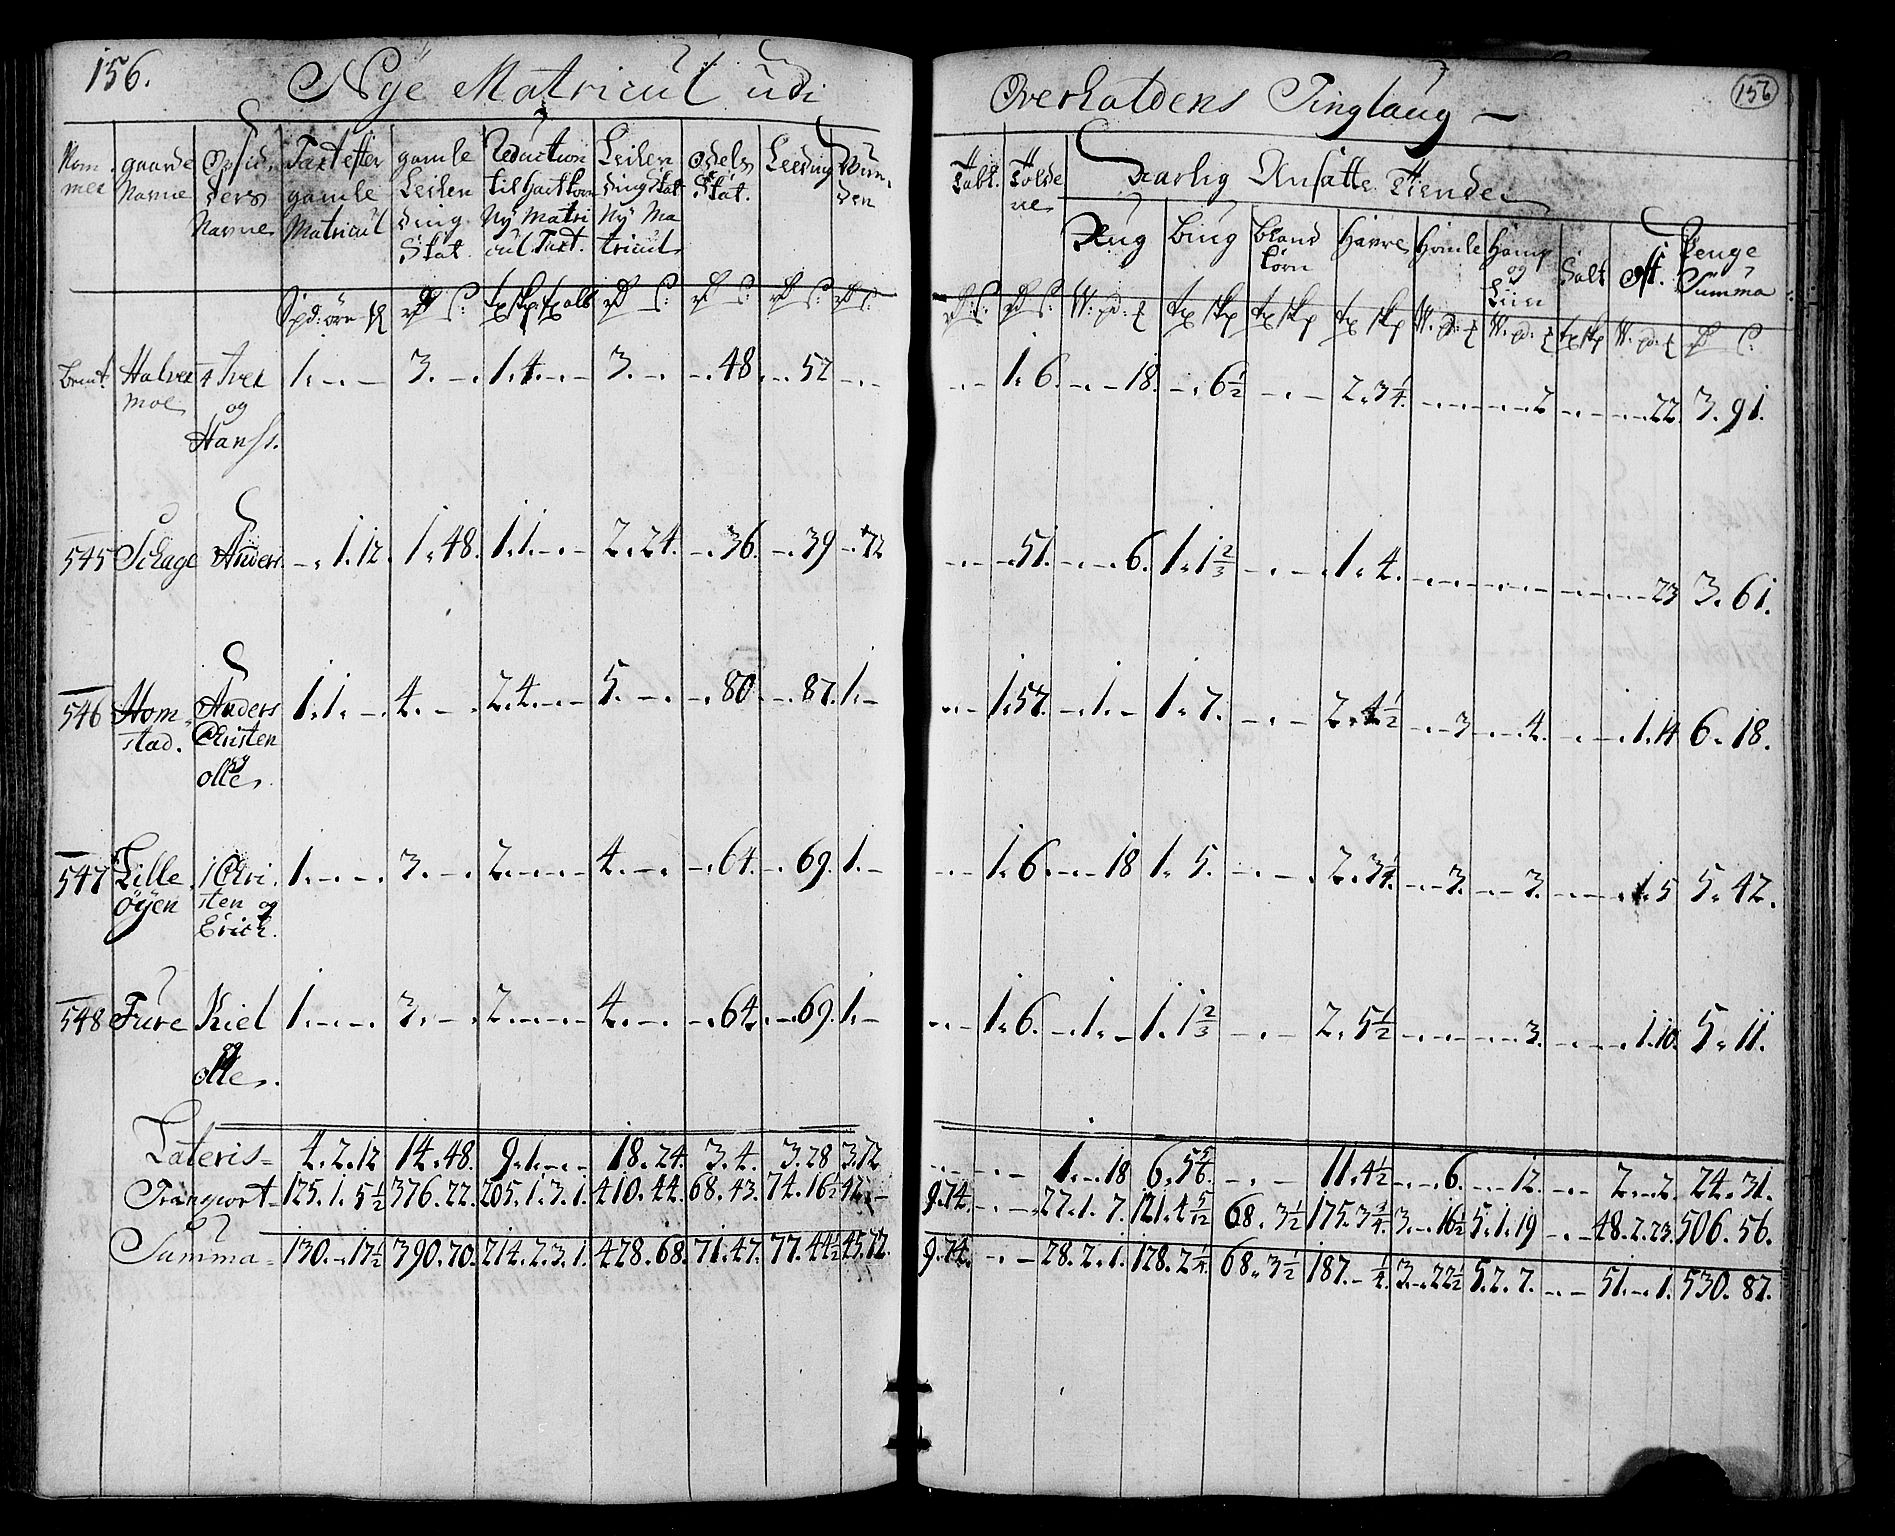 156.
Nÿe Matricul udi
Overhaldens Tinglaug
156
Num
mer
gaarde
Navne
Opsid
ders
Navne
Taxt efter
gamle
Matricul
gamle
Leilen
ding
Skat
Reduction
til Hartkorn
Nÿ Matri
cul Taxt.
Leilen
ding Skat
Nÿ Ma
tricul
Odels
Skat.
Leeding
Tolt.
Tolde
ne
Aarlig Ansatte Tiende
Rug
Biug
bland
korn
Havre
Humle
Hamp
og
Liin
Salt
Ost.
Penge
Summa
Spd: öre
Halver
moe
Iver
og
Hans.
1. - . - 3. - . 1. 4. - . - 3. - . - . 48 - . 52 - . -
- . - 1. 6. - . - 18. - . 6½ - . - 2. 3¼. - . - . - . - . 2 - . - . - . 22. 3. 91.
545 Schage Anders - . 1. 12. 1. 48. 1. 1. - . - 2. 24. - . 36. - . 39 - . 72
- . - - . 51. - . - . 6. 1. 1⅔ - . - 1. 4. - . - . - . - . - . - . - . 23 3. 61.
546 Hom
stad.
Anders
Christen
og
olle.
1. 1. - . 4. - . 2. 4. - . - 5. - . - . 80 - . 87. 1. -
- . - 1. 57. - . 1. - 1. 7. - . - 2. 4½ - . 3 - . 4. - . - . 1. 14 6. 18.
547 Lille
öÿen
Chri
sten og
Erich.
1. - . - . 3. - . 2. - . - . - 4. - . - . 64. - . 69. 1. -
- . - 1. 6. - . - 18 1. 5. - . - . 2. 3¼. - . 3. - . 3. - . - . 1. 5 5. 42.
548 Fure Kiel
og
olle.
1. - . - . 3. - . 2. - . - . - 4. - . - . 64. - . 69. 1. -
- . - 1. 6. - . 1. - 1. 1⅔ - . - 2. 5½ - . - . - . 3. - . - . 1. 10. 5. 11.
Lateris 4. 2. 12 14. 48. 9. 1. - . - 18. 24. 3. 4. 3. 28 3. 72
- . - - . - 1. - . 18 6. 5 - . - 11. 4½ - . 6. - . 12. - . - 2. - . 2. 24. 31.
Transport 125. 1. 5½ 376. 22. 205. 1. 3. 1. 410. 44. 68. 43. 74. 16½ 42. -
9. 74. - . - 27. 1. 7. 121. 4 5/12 68. 3½ 175. 3¾ 3. - . 16½ 5. 1. 19 - . - 48. 2. 23. 506. 56.
Summa 130. - . 17½ 390. 70. 214. 2. 3. 1. 428. 68. 71. 47. 77. 44½ 45. 72.
9. 74. - . - 28. 2. 1. 128. 2¼. 68. 3½ 187. - ¼. 3. - . 22½ 5. 2. 7. - . - 51. - . 1. 530. 87.